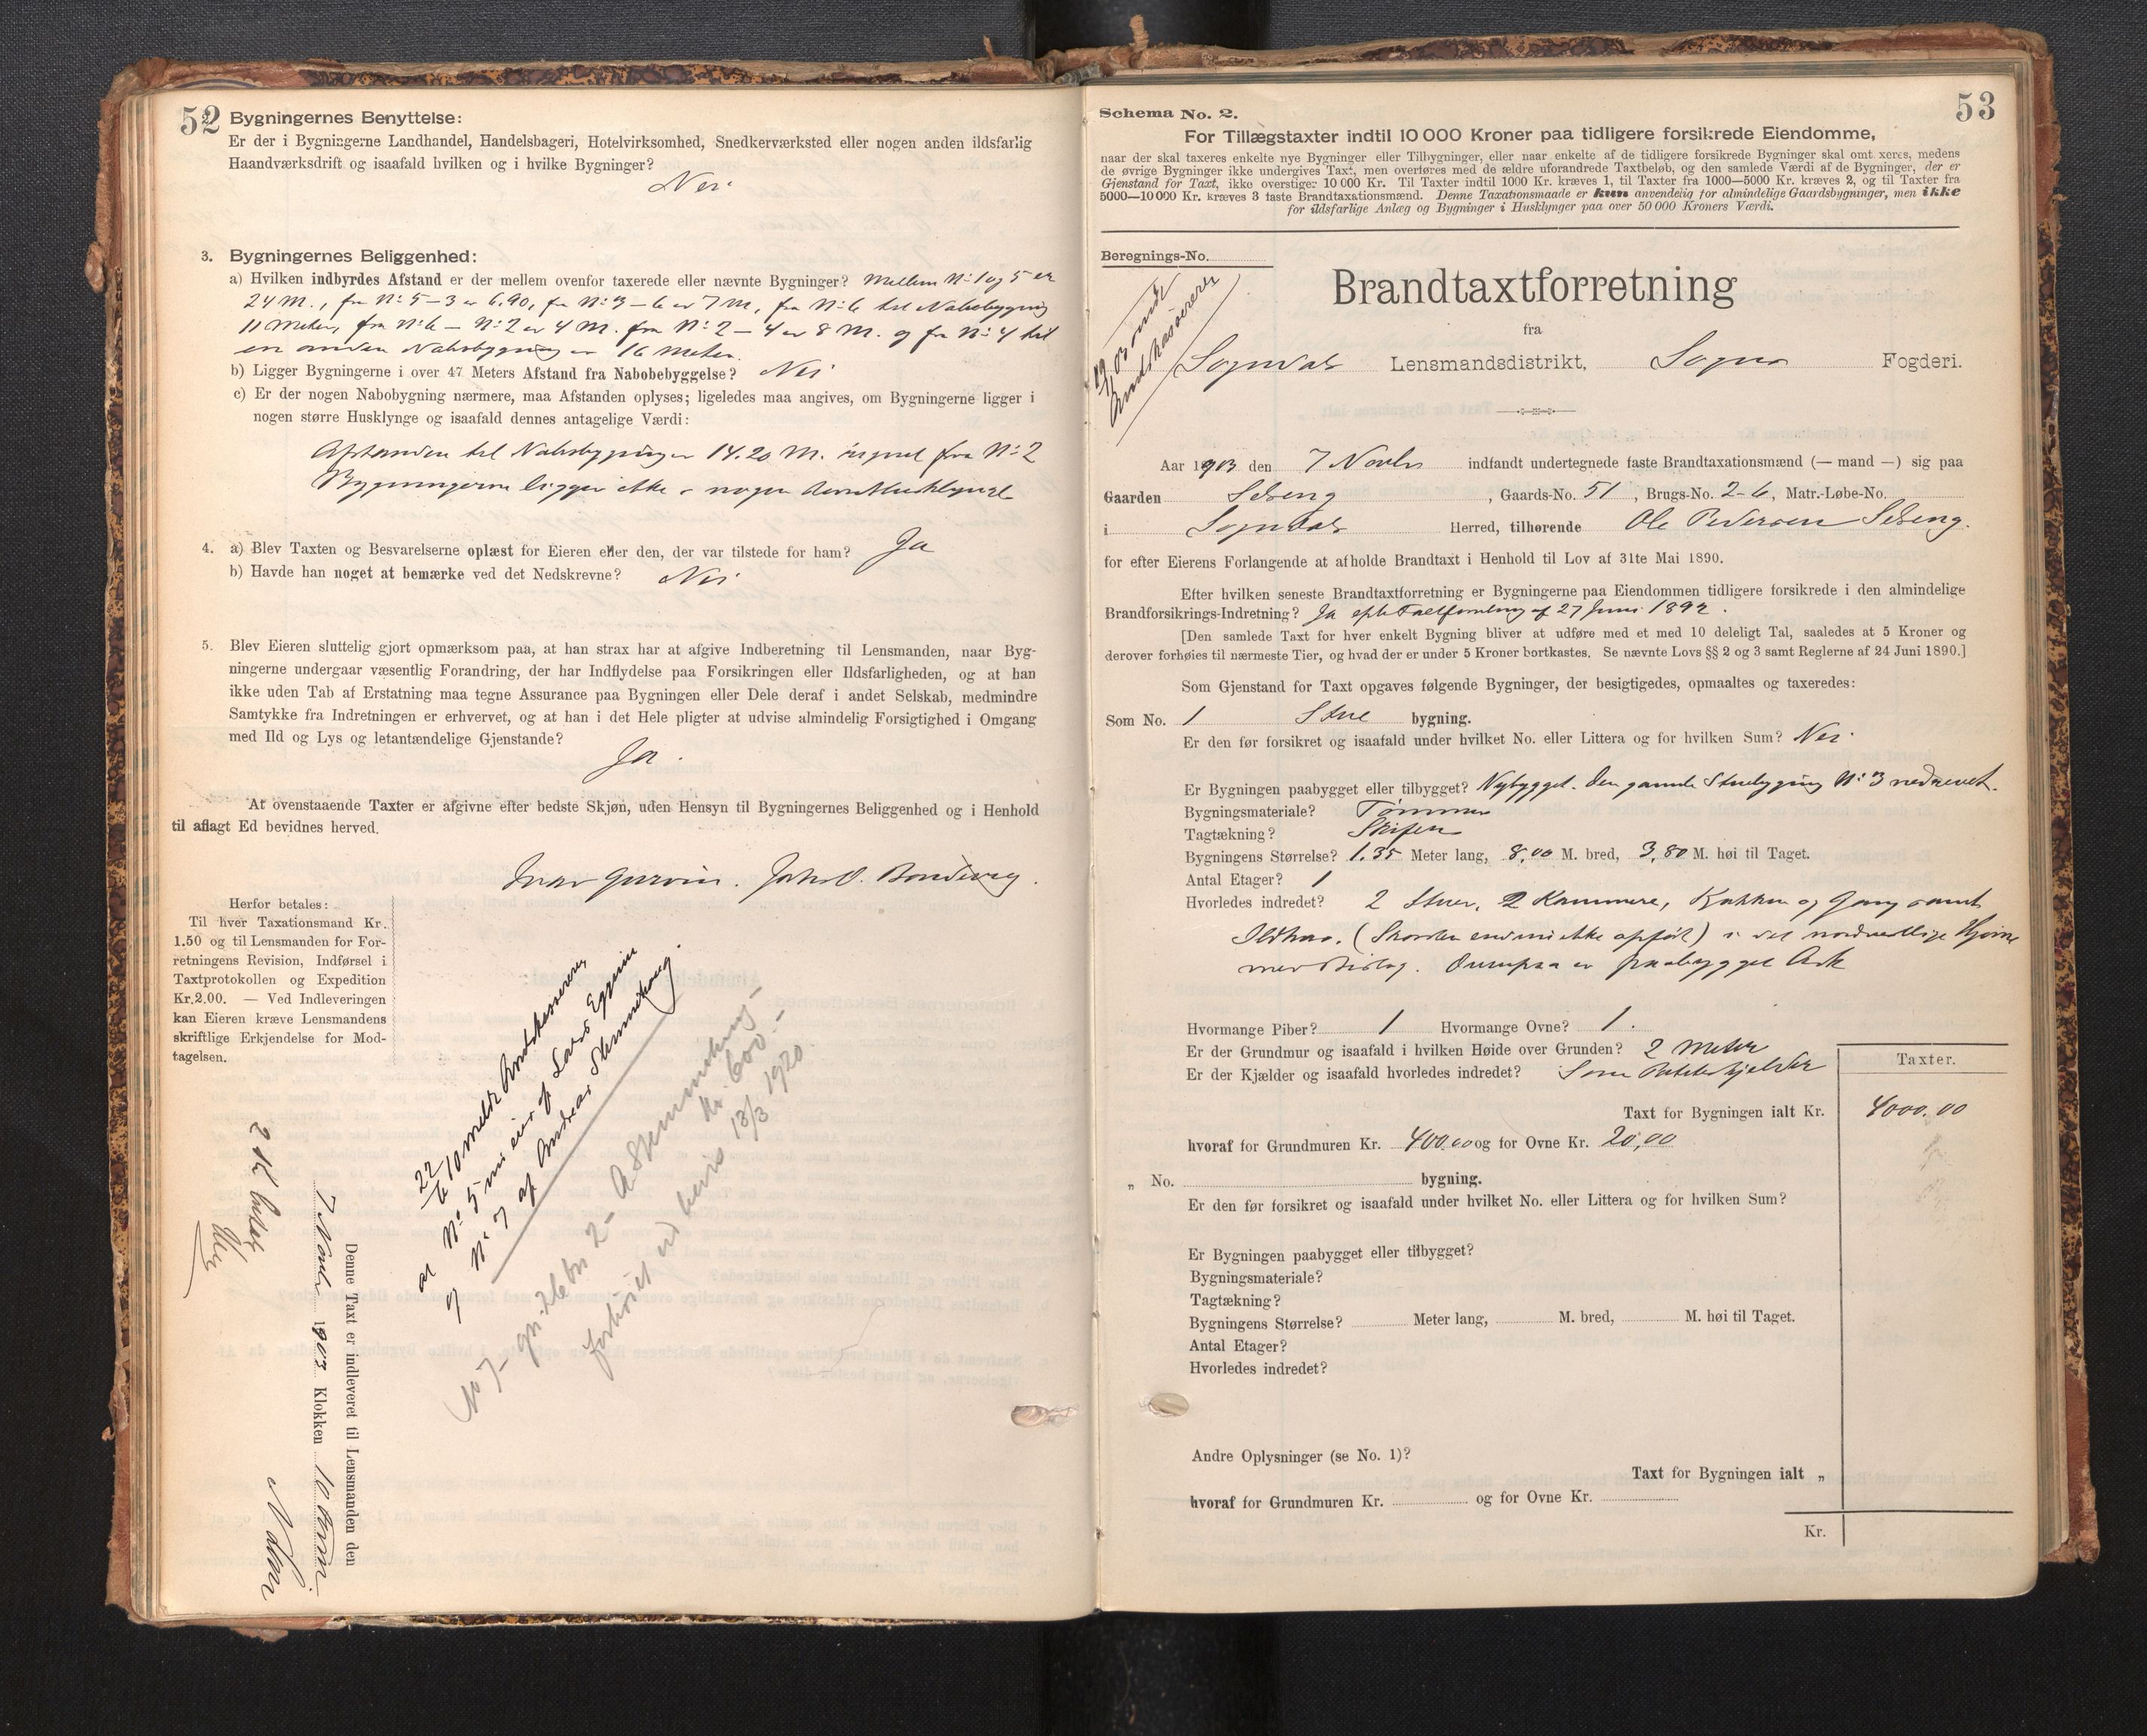 52
Bygningernes Benyttelse:
Er der i Bygningerne Landhandel, Handelsbageri, Hotelvirksomhed, Snedkerværksted eller nogen anden ildsfarlig
Haandværksdrift og isaafald hvilken og i hvilke Bygninger?
Nei
3. Bygningernes Beliggenhed:
a) Hvilken indbyrdes Afstand er der mellem ovenfor taxerede eller nævnte Bygninger? Mellem No 1 og 5 er
24 M., fra No 5 – 3 er 6.90, fra No 3 – 6 er 7 M, fra No 6 til Nabobygning
11 Meter, fra No 6 – No 2 er 4 M. fra No 2 – 4 er 8 M. og fra No 4 til
en anden Nabobygning er 16 Meter.
b) Ligger Bygningerne i over 47 Meters Afstand fra Nabobebyggelse? Nei
c) Er der nogen Nabobygning nærmere, maa Afstanden oplyses; ligeledes maa angives, om Bygningerne ligger i
nogen større Husklynge og isaafald dennes antagelige Værdi:
Afstanden til Nabobygning er 14.20 M. regnet fra No 2
Bygningerne ligger ikke i nogen Husklynge
4. a) Blev Taxten og Besvarelserne oplæst for Eieren eller den, der var tilstede for ham? Ja
b) Havde han noget at bemærke ved det Nedskrevne? Nei
5. Blev Eieren sluttelig gjort opmærksom paa, at han strax har at afgive Indberetning til Lensmanden, naar Byg-
ningerne undergaar væsentlig Forandring, der har Indflydelse paa Forsikringen eller Ildsfarligheden, og at han
ikke uden Tab af Erstatning maa tegne Assurance paa Bygningen eller Dele deraf i andet Selskab, medmindre
Samtykke fra Indretningen er erhvervet, og at han i det Hele pligter at udvise almindelig Forsigtighed i Omgang
med Ild og Lys og letantændelige Gjenstande?
Ja.
At ovenstaaende Taxter er afgivne efter bedste Skjøn, uden Hensyn til Bygningernes Beliggenhed og i Henhold
til aflagt Ed bevidnes herved.
Herfor betales:
Til hver Taxationsmand Kr.
1.50 og til Lensmanden for For-
retningens Revision, Indførsel i
Taxtprotokollen og Expedition
Kr.2.00. — Ved Indleveringen
kan Eieren kræve Lensmandens
skriftlige Erkjendelse for Mod-
tagelsen.
22/6 10 meldt Andskasserer
at No 5 nu eies af Lars
og No 7 af Andreas
13/3 1920
2 K betalt
Denne Taxt er indleveret til Lensmanden den
7 Novbr 1903 Klokken 10
53
Schema No. 2.
For Tillægstaxter indtil 10 000 Kroner paa tidligere forsikrede Eiendomme,
naar der skal taxeres enkelte nye Bygninger eller Tilbygninger, eller naar enkelte af de tidligere forsikrede Bygninger skal omtaxeres, medens
de øvrige Bygninger ikke undergives Taxt, men overføres med de ældre uforandrede Taxtbeløb, og den samlede Værdi af de Bygninger, der er
Gjenstand for Taxt, ikke overstiger 10 000 Kr. Til Taxter indtil 1000 Kr. kræves 1, til Taxter fra 1000—5000 Kr. kræves 2, og til Taxter fra
5000—10 000 Kr. kræves 3 faste Brandtaxationsmænd. Denne Taxationsmaade er kun anvendelig for almindelige Gaardsbygninger, men ikke
for ildsfarlige Anlæg og Bygninger i Husklynger paa over 50 000 Kroners Værdi.
Beregnings-No.
Brandtaxtforretning
fra
Sogndal Lensmandsdistrikt, Sogns Fogderi.
Aar 1903 den 7 Novbr indfandt undertegnede faste Brandtaxationsmænd (— mand —) sig paa
Gaarden Selseng, Gaards-No. 51, Brugs-No. 2-6, Matr.-Løbe-No.
i Sogndal Herred, tilhørende Ole Pedersen Selseng.
for efter Eierens Forlangende at afholde Brandtaxt i Henhold til Lov af 31te Mai 1890.
Efter hvilken seneste Brandtaxtforretning er Bygningerne paa Eiendommen tidligere forsikrede i den almindelige
Brandforsikrings-Indretning? Ja efter Taxtforretning af 27 Juni 1892.
[Den samlede Taxt for hver enkelt Bygning bliver at udføre med et med 10 deleligt Tal, saaledes at 5 Kroner og
derover forhøies til nærmeste Tier, og hvad der er under 5 Kroner bortkastes. Se nævnte Lovs §§ 2 og 3 samt Reglerne af 24 Juni 1890.]
Som Gjenstand for Taxt opgaves følgende Bygninger, der besigtigedes, opmaaltes og taxeredes:
Som No. 1 Stue bygning.
Er den før forsikret og isaafald under hvilket No. eller Littera og for hvilken Sum? Nei
Er Bygningen paabygget eller tilbygget? Nybygget. Den gamle Stuebygning No 3 nedrevet.
Bygningsmateriale? Tømmer
Tagtækning? Skifer
Bygningens Størrelse? 1.35 Meter lang, 8,00 M. bred, 3,80 M. høi til Taget.
Antal Etager? 1
Hvorledes indret? 2 Stuer, 2 Kammere, Kjøkken og Gang samt
Ildhus. (Skorsten endnu ikke opført) i det nordvestlige Hjørne
med Bislag. Ovenpaa er paabygget Ark
Hvormange Piber? 1 Hvormange Ovne? 1.
Er der Grundmur og isaafald i hvilken Høide over Grunden? 2 Meter
Er der Kjælder og isaafald hvorledes indredet? Som Potetkjelder
Taxter.
Taxt for Bygningen ialt Kr. 4000.00
hvoraf for Grundmuren Kr. 400.00 og for Ovne Kr. 20,00
„ No. bygning.
Er den før forsikret og isaafald under hvilket No. eller Littera og for hvilken Sum?
Er Bygningen paabygget eller tilbygget?
Bygningsmateriale?
Tagtækning?
Bygningens Størrelse? Meter lang, M. bred, M. høi til Taget.
Antal Etager?
Hvorledes indredet?
Andre Oplysninger (se No. 1)?
Taxt for Bygningen ialt „
hvoraf for Grundmuren Kr. og for Ovne Kr.
Kr.